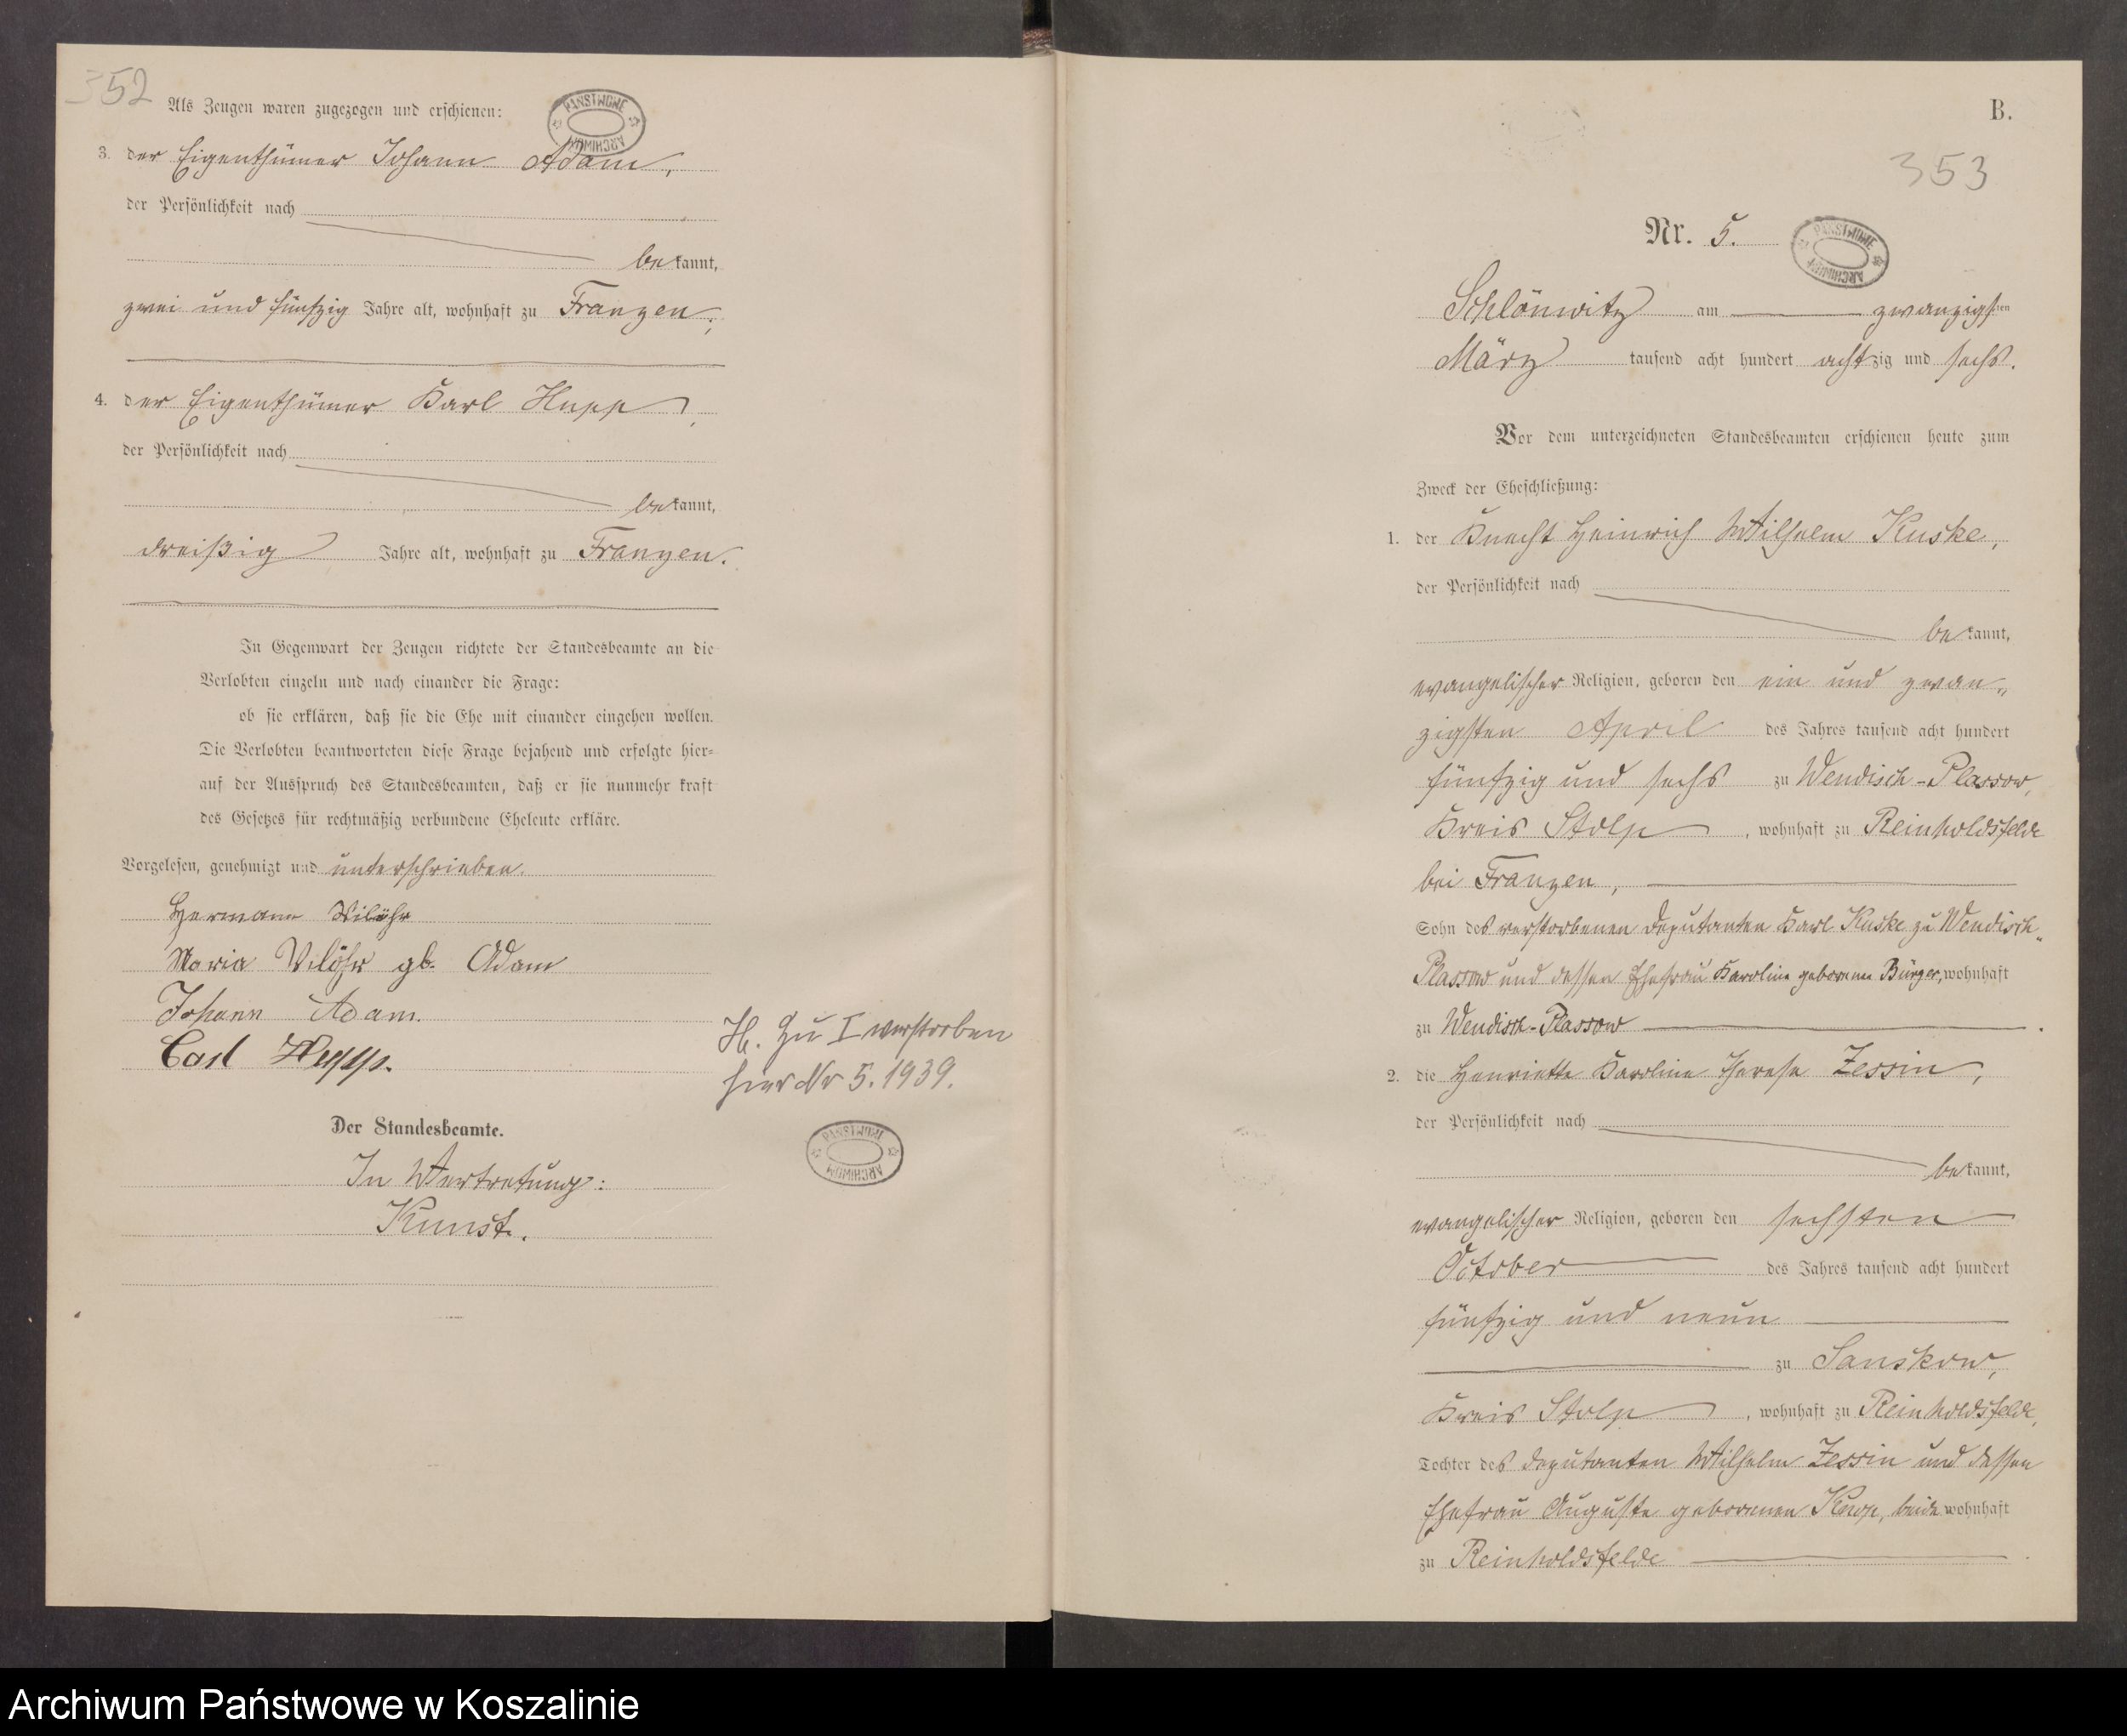 352
Als Zeugen waren zugezogen und erschienen:
PAŃSTWOWE ARCHIWUM
3. der Eigenthümer Johann Adam,
der Persönlichkeit nach
bekannt,
zwei und fünfzig Jahre alt, wohnhaft zu Franzen;
4. der Eigenthümer Karl Hupp,
der Persönlichkeit nach
bekannt,
dreißig Jahre alt, wohnhaft zu Franzen.
In Gegenwart der Zeugen richtete der Standesbeamte an die
Verlobten einzeln und nach einander die Frage:
ob sie erklären, daß sie die Ehe mit einander eingehen wollen.
Die Verlobten beantworteten diese Frage bejahend und erfolgte hier=
auf der Ausspruch des Standesbeamten, daß er sie nunmehr kraft
des Gesetzes für rechtmäßig verbundene Eheleute erkläre.
Vorgelesen, genehmigt und unterschrieben.
Hermann Vilöhr
Maria Vilöhr gb. Adam
Johann Adam.
Carl Hupp.
H. Zu I verstorben
hier Nr 5. 1939.
PAŃSTWOWE ARCHIWUM
Der Standesbeamte.
In Vertretung:
Kunst.
B.
353
Nr. 5.
PAŃSTWOWE ARCHIWUM
Schlönwitz am zwanzigsten
März tausend acht hundert achtzig und sechs.
Vor dem unterzeichneten Standesbeamten erschienen heute zum
Zweck der Eheschließung:
1. der Knecht Heinrich Wilhelm Kuske,
der Persönlichkeit nach
bekannt,
evangelischer Religion, geboren den ein und zwan„
zigsten April des Jahres tausend acht hundert
fünfzig und sechs zu Wendisch-Plassow,
Kreis Stolp, wohnhaft zu Reinholdsfelde
bei Franzen,
Sohn des verstorbenen Deputanten Karl Kuske zu Wendisch„
Plassow und dessen Ehefrau Karoline geborenen Bürger, wohnhaft
zu Wendisch-Plassow.
2. die Henriette Karoline Therese Zessin,
der Persönlichkeit nach
bekannt,
evangelischer Religion, geboren den sechsten
October des Jahres tausend acht hundert
fünfzig und neun
zu Sanskow,
Kreis Stolp, wohnhaft zu Reinholdsfelde,
Tochter des Deputanten Wilhelm Zessin und dessen
Ehefrau Auguste geborenen Knop, beide wohnhaft
zu Reinholdsfelde.
Archiwum Państwowe w Koszalinie